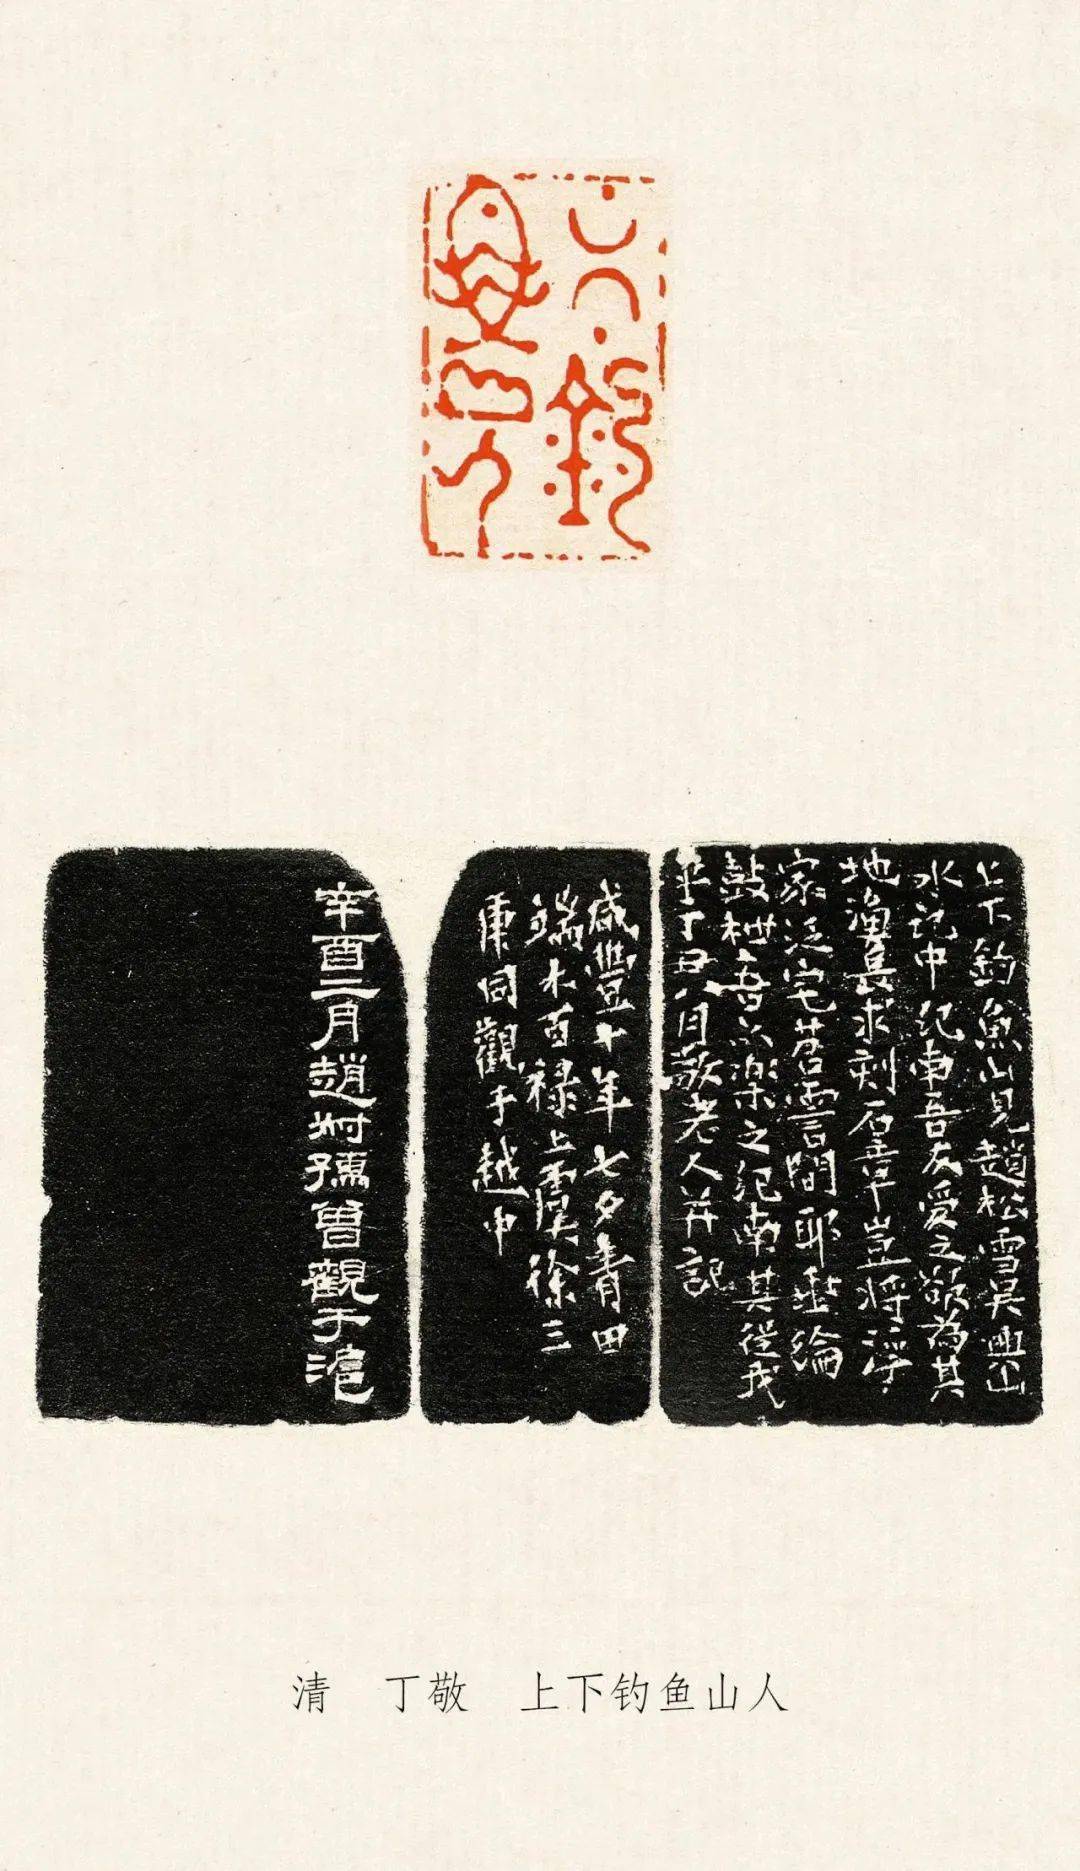 上下釣魚山人
上下釣魚山見趙松雪吳興山
水記中紀南吾友愛之欲為其
地漁長求刻石章豈將浮
家泛宅苕霅間耶垂綸
鼓枻吾亦樂之紀南其從我
乎丁丑八月敬老人并記
咸豐十年七夕青田
端木百祿上虞徐三
庚同觀于越中
辛酉二月趙叔孺曾觀于滬
清 丁敬 上下钓鱼山人